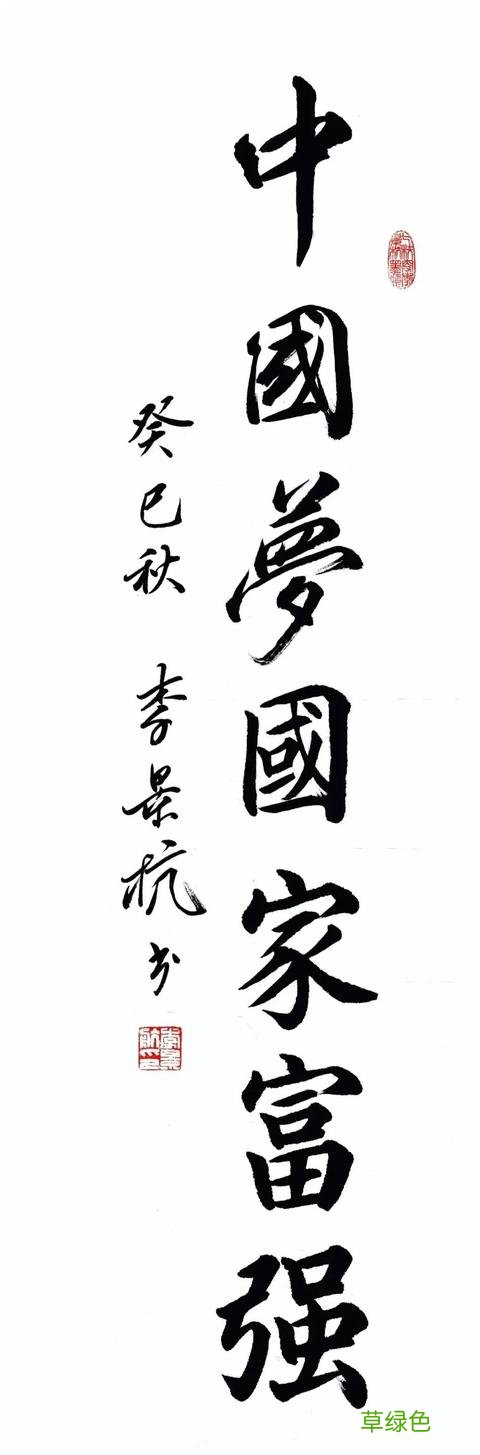 中國夢國家富强
癸巳秋 李景杭书
草绿色